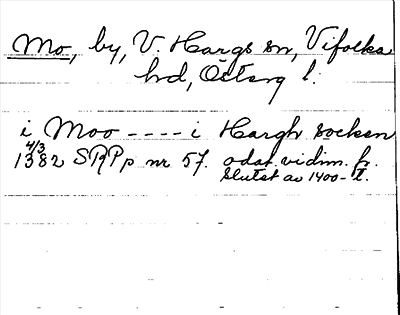 Mo, by, V. Hargs sn, Vifolka
hd, Österg l.
i Moo ---- i Hargh socken
4/3
1382 SRPp nr 57. odat. vidim. fr.
slutet av 1400-t.